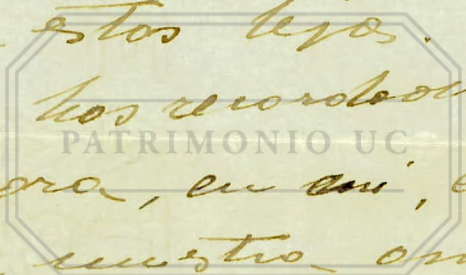 estas lejos.
has recordado
PATRIMONIO UC
ora, en mi,
nuestra